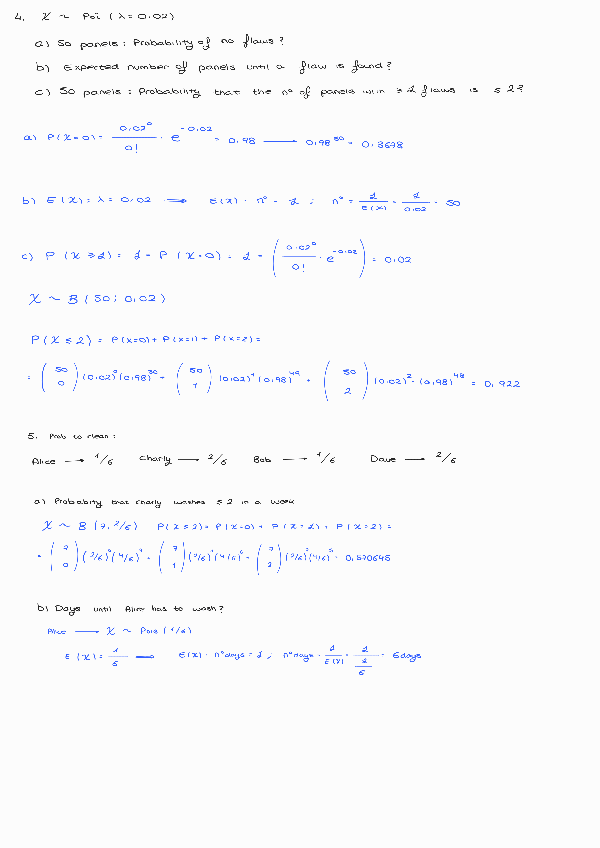 4. X ~ Poi (λ = 0.02)
a) 50 panels: Probability of no flaws?
b) Expected number of panels until a flaw is found?
c) 50 panels: Probability that the nº of panels with ≥ 1 flaws is ≤ 2?
a) P(X=0) = 0.02⁰/0! · e^-0.02 = 0.98 → 0.98⁵⁰ = 0.3678
b) E(X) = λ = 0.02 ⇒ E(X) · nº = 1 ; nº = 1/E(X) = 1/0.02 = 50
c) P (X ≥ 1) = 1 - P (X=0) = 1 - (0.02⁰/0! · e^-0.02) = 0.02
X ~ B (50; 0.02)
P(X ≤ 2) = P(X=0) + P(X=1) + P(X=2) =
= (50 0) (0.02)⁰ (0.98)⁵⁰ + (50 1) (0.02)¹ (0.98)⁴⁹ + (50 2) (0.02)² · (0.98)⁴⁸ = 0.922
5. Prob to clean:
Alice → 1/6 Charly → 2/6 Bob → 1/6 Dave → 2/6
a) Probability that Charly washes ≤ 2 in a week
X ~ B (7, 2/6) P(X ≤ 2) = P(X=0) + P(X=1) + P(X=2) =
= (7 0) (2/6)⁰ (4/6)⁷ + (7 1) (2/6)¹ (4/6)⁶ + (7 2) (2/6)² (4/6)⁵ = 0.570645
b) Days until Alice has to wash?
Alice → X ~ Pois (1/6)
E(X) = 1/6 ⇒ E(X) · nº days = 1 ; nº days = 1/E(X) = 1/(1/6) = 6 days